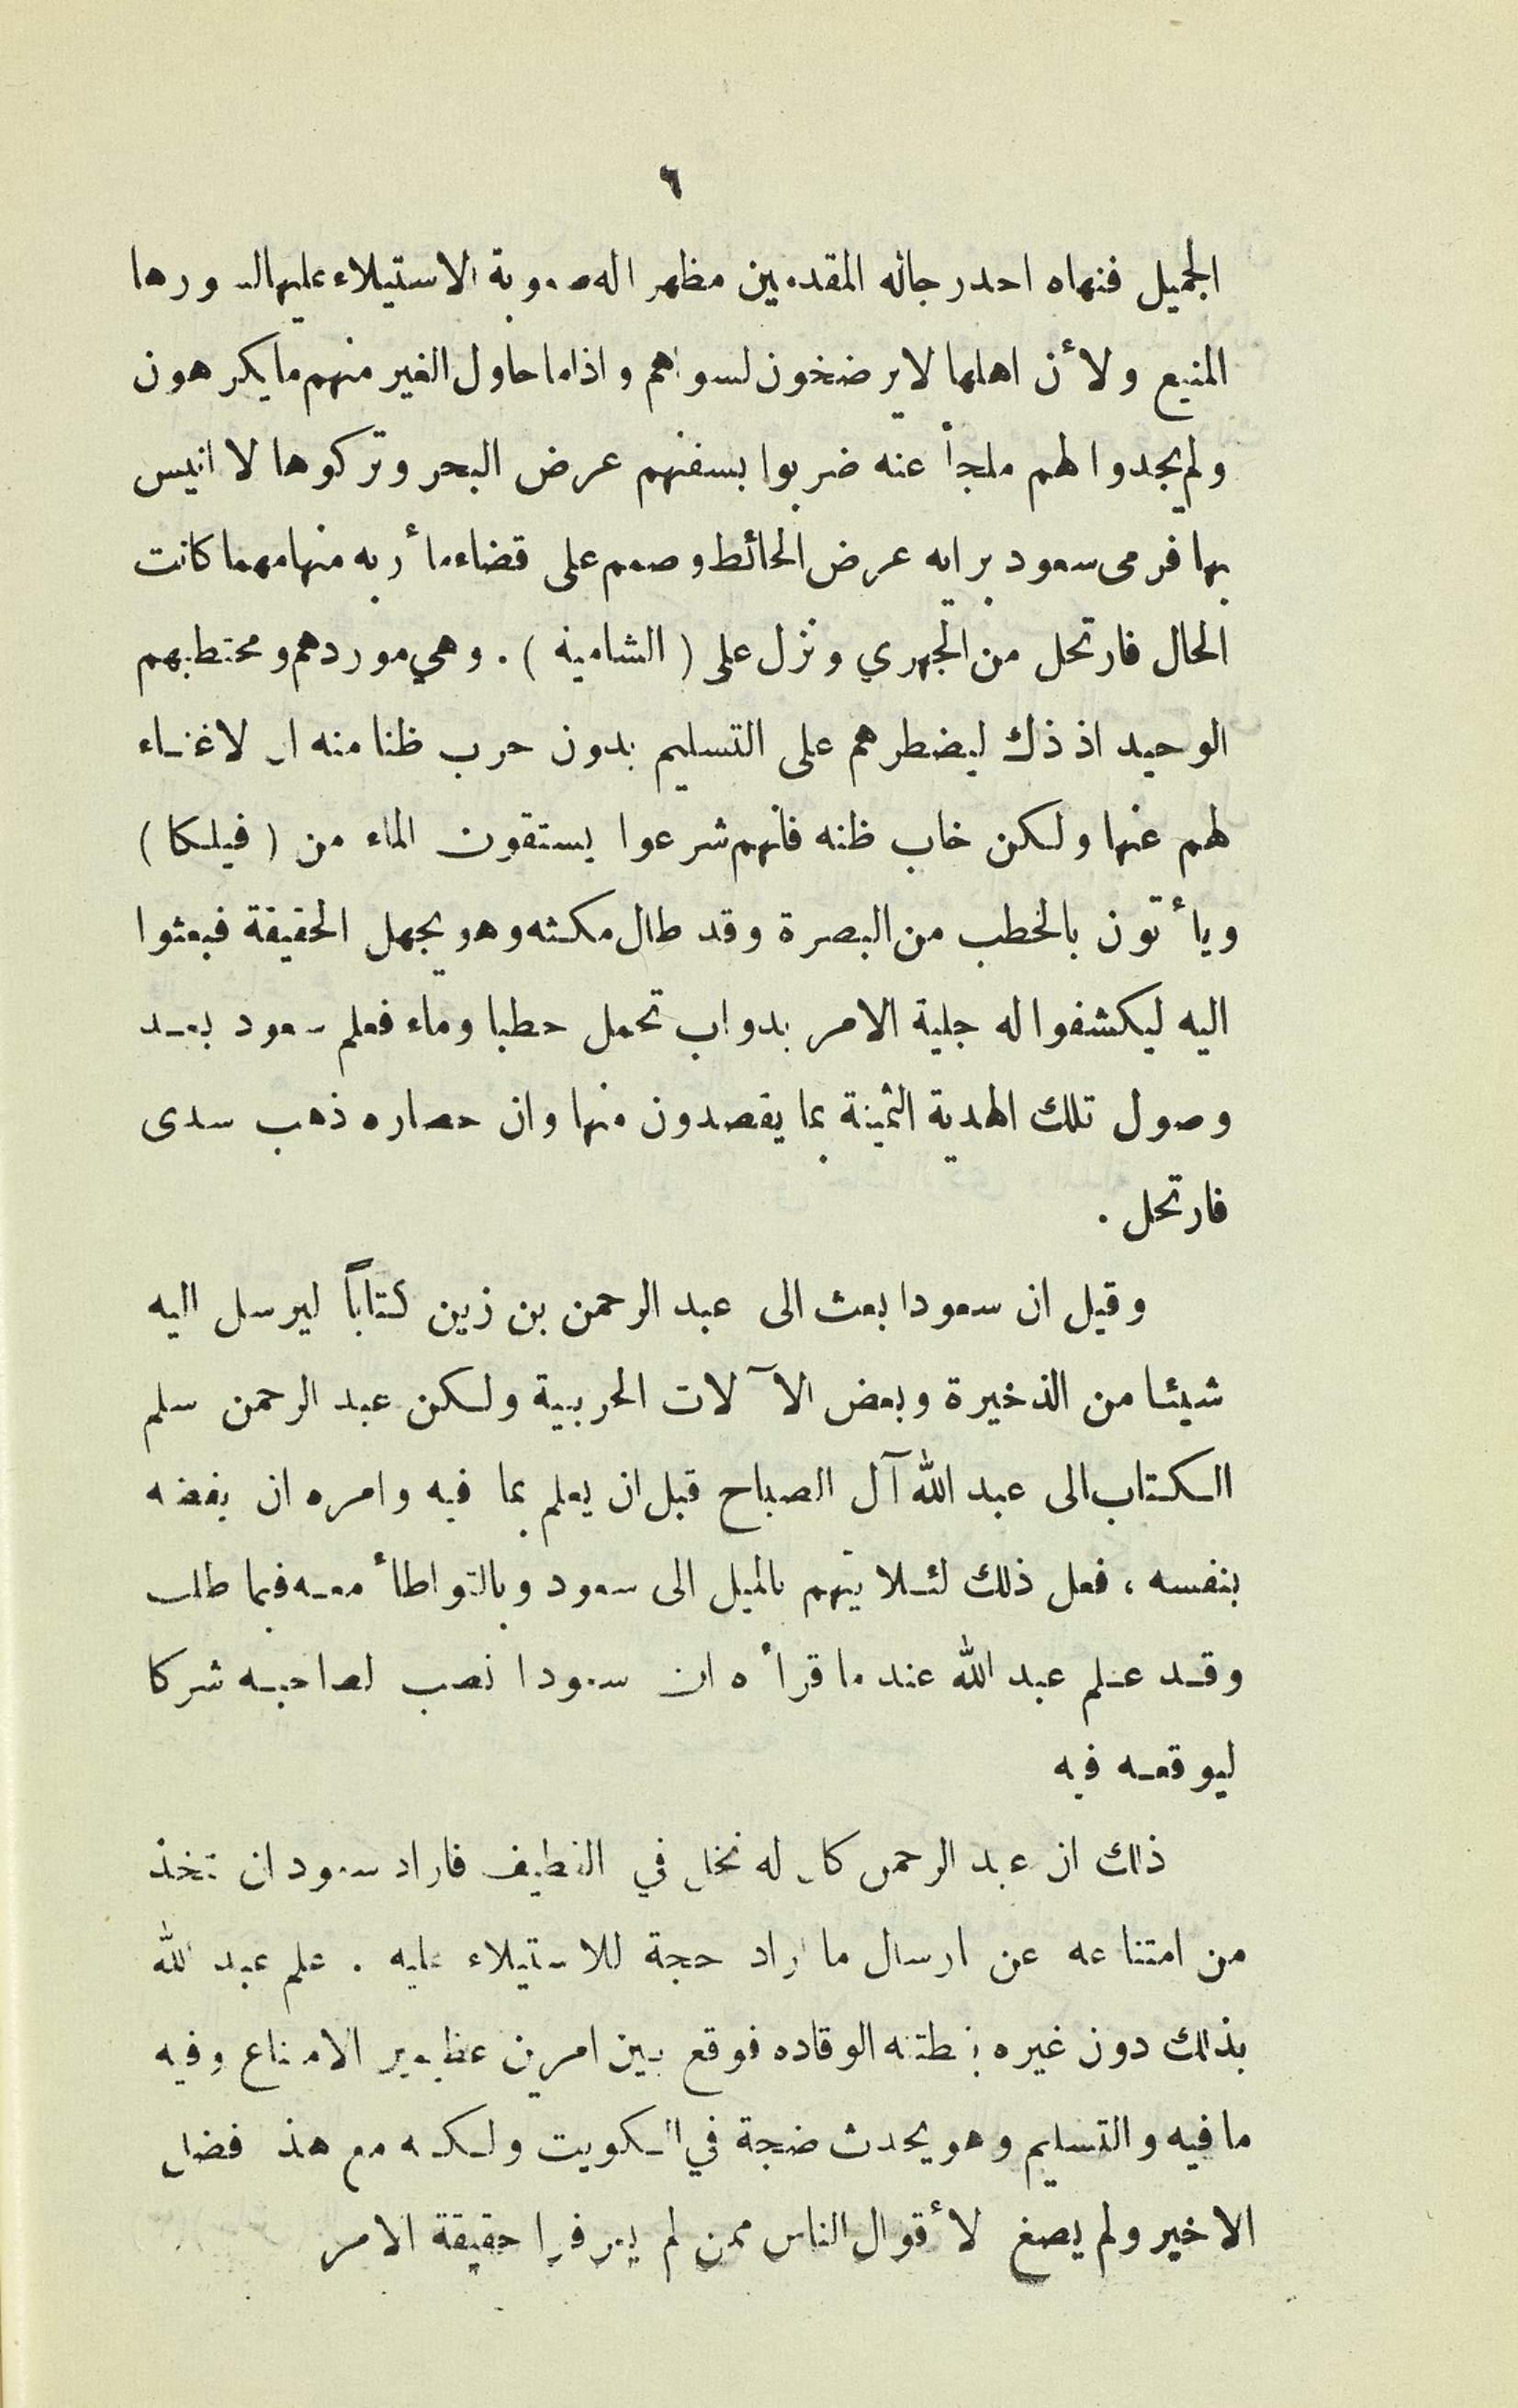 ٦
الجميل فنهاه احد رجاله المقدمين مظهرا له صعوبة الاستيلاء عليها لسورها
المنيع ولأن اهلها لا يرضخون لسواهم واذا ما حاول الغير منهم ما يكرهون
ولم يجدوا لهم ملجأ عنه ضربوا بسفنهم عرض البحر وتركوها لا انيس
بها فرمى سعود برايه عرض الحائط وصمم على قضاء مأربه منها مهما كانت
الحال فارتحل من الجهري ونزل على ( الشامية ) . وهي موردهم ومحتطبهم
الوحيد اذ ذاك ليضطرهم على التسليم بدون حرب ظنا منه ان لا غناء
لهم عنها ولكن خاب ظنه فانهم شرعوا يستقون الماء من ( فيلكا )
ويأتون بالحطب من البصرة وقد طال مكثه وهو يجهل الحقيقة فبعثوا
اليه ليكشفوا له جلية الامر بدواب تحمل حطبا وماء فعلم سعود بعد
وصول تلك الهدية الثمينة بما يقصدون منها وان حصاره ذهب سدى
فارتحل .
وقيل ان سعودا بعث الى عبد الرحمن بن زين كتاباً ليرسل اليه
شيئا من الذخيرة وبعض الآلات الحربية ولكن عبد الرحمن سلم
الكتاب الى عبد الله آل الصباح قبل ان يعلم بما فيه وامره ان يفضه
بنفسه ، فعل ذلك لئلا يتهم بالميل الى سعود وبالتواطأ معه فيما طلب
وقد علم عبد الله عند ما قرأه ان سعودا نصب لصاحبه شركا
ليوقعه فيه
ذلك ان عبد الرحمن كان له نخل في القطيف فاراد سعود ان يتخذ
من امتناعه عن ارسال ما اراد حجة للاستيلاء عليه . علم عبد الله
بذلك دون غيره بفطنته الوقاده فوقع بين امرين عظيمين الامتناع وفيه
ما فيه والتسليم وهو يحدث ضجة في الكويت ولكنه مع هذا فضل
الاخير ولم يصغ لأقوال الناس ممن لم يعرفوا حقيقة الامر